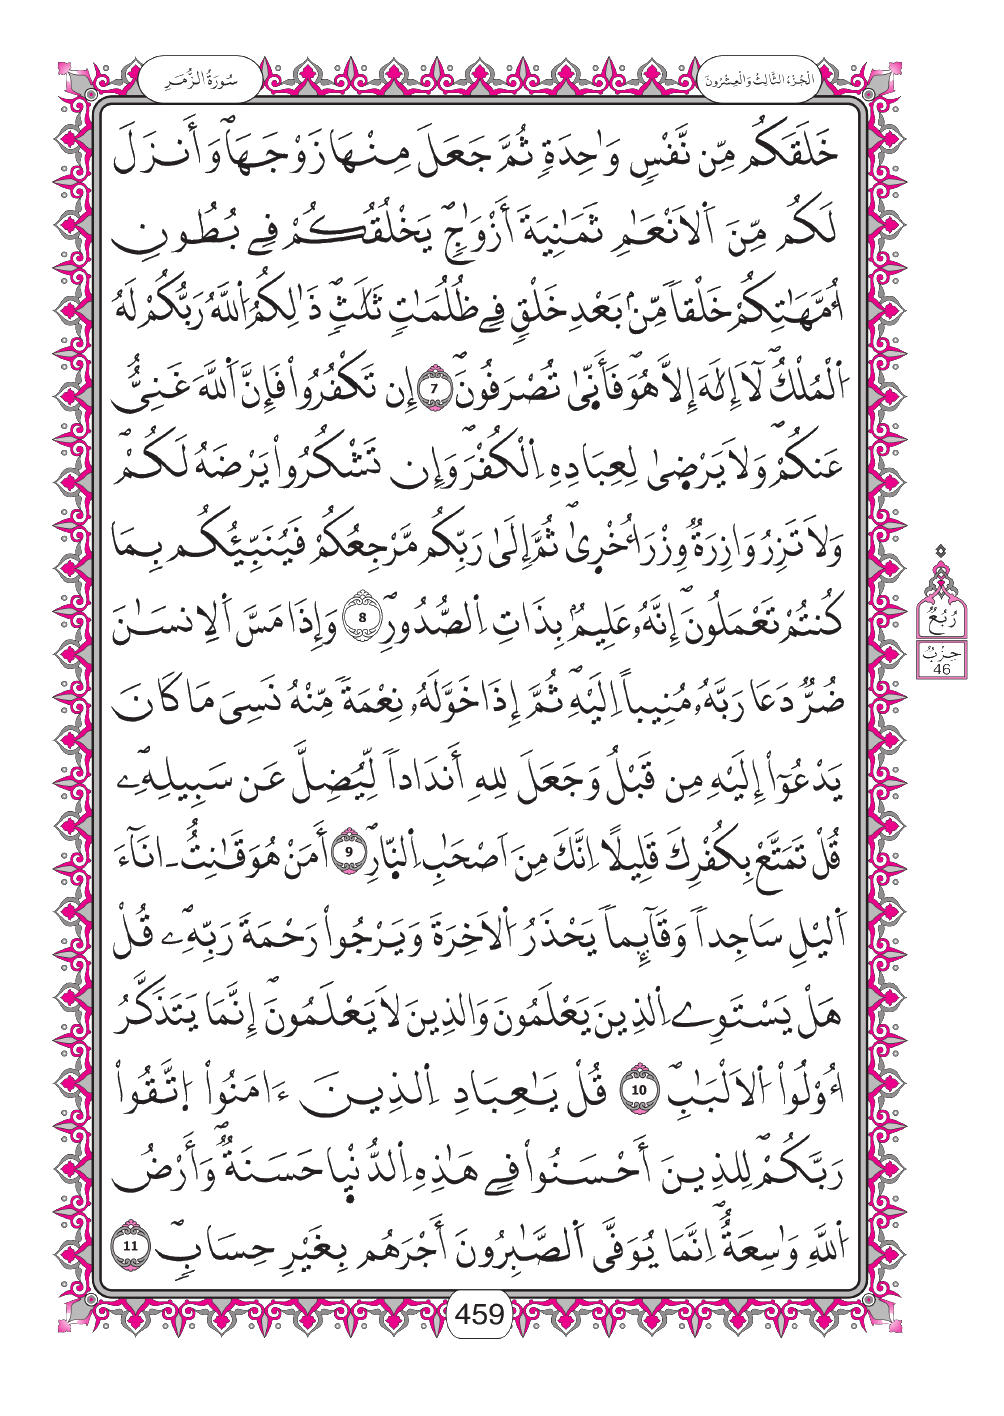 الْجُزْءُ الثَّالِثُ وَالْعِشْرُونَ
سُورَةُ الزُّمَرِ
خَلَقَكُم مِّن نَّفْسٍ وَٰحِدَةٍ ثُمَّ جَعَلَ مِنْهَا زَوْجَهَاۖ وَأَنزَلَ
لَكُم مِّنَ اَ۬لَانْعَٰمِ ثَمَٰنِيَةَ أَزْوَٰجٖۖ يَخْلُقُكُمْ فِے بُطُونِ
أُمَّهَٰتِكُمْ خَلْقاٗ مِّنۢ بَعْدِ خَلْقٖ فِے ظُلُمَٰتٖ ثَلَٰثٖۖ ذَٰلِكُمُ اُ۬للَّهُ رَبُّكُمْ لَهُ
اُ۬لْمُلْكُۖ لَآ إِلَٰهَ إِلَّا هُوَۖ فَأَنّ۪يٰ تُصْرَفُونَۖ 7 إِن تَكْفُرُواْ فَإِنَّ اَ۬للَّهَ غَنِيٌّ
عَنكُمْۖ وَلَا يَرْض۪يٰ لِعِبَادِهِ اِ۬لْكُفْرَۖ وَإِن تَشْكُرُواْ يَرْضَهُ لَكُمْۖ
وَلَا تَزِرُ وَازِرَةٞ وِزْرَ أُخْر۪يٰۖ ثُمَّ إِلَىٰ رَبِّكُم مَّرْجِعُكُمْ فَيُنَبِّئُكُم بِمَا
كُنتُمْ تَعْمَلُونَۖ إِنَّهُۥ عَلِيمُۢ بِذَاتِ اِ۬لصُّدُورِۖ 8 وَإِذَا مَسَّ اَ۬لِانسَٰنَ
ضُرّٞ دَعَا رَبَّهُۥ مُنِيباً اِلَيْهِۖ ثُمَّ إِذَا خَوَّلَهُۥ نِعْمَةٗ مِّنْهُ نَسِيَ مَا كَانَ
يَدْعُوٓاْ إِلَيْهِ مِن قَبْلُ وَجَعَلَ لِلهِ أَندَاداٗ لِّيُضِلَّ عَن سَبِيلِهِۦۖ
قُلْ تَمَتَّعْ بِكُفْرِكَ قَلِيلًا اِنَّكَ مِنَ اَصْحَٰبِ اِ۬لنّ۪ارِۖ 9 أَمَنْ هُوَ قَٰنِتٌ اٰنَآءَ
اَ۬ليْلِ سَاجِداٗ وَقَآئِماٗ يَحْذَرُ اُ۬لَاخِرَةَ وَيَرْجُواْ رَحْمَةَ رَبِّهِۦۖ قُلْ
هَلْ يَسْتَوِے اِ۬لذِينَ يَعْلَمُونَ وَالذِينَ لَا يَعْلَمُونَۖ إِنَّمَا يَتَذَكَّرُ
أُوْلُواْ اُ۬لَالْبَٰبِۖ 10 قُلْ يَٰعِبَادِ اِ۬لذِينَ ءَامَنُواْ اُ۪تَّقُواْ
رَبَّكُمْۖ لِلذِينَ أَحْسَنُواْ فِے هَٰذِهِ اِ۬لدُّنْي۪ا حَسَنَةٞۖ وَأَرْضُ
اُ۬للَّهِ وَٰسِعَةٌۖ اِنَّمَا يُوَفَّى اَ۬لصَّٰبِرُونَ أَجْرَهُم بِغَيْرِ حِسَابٖۖ 11
رُبُعُ
حِزْبُ
46
459